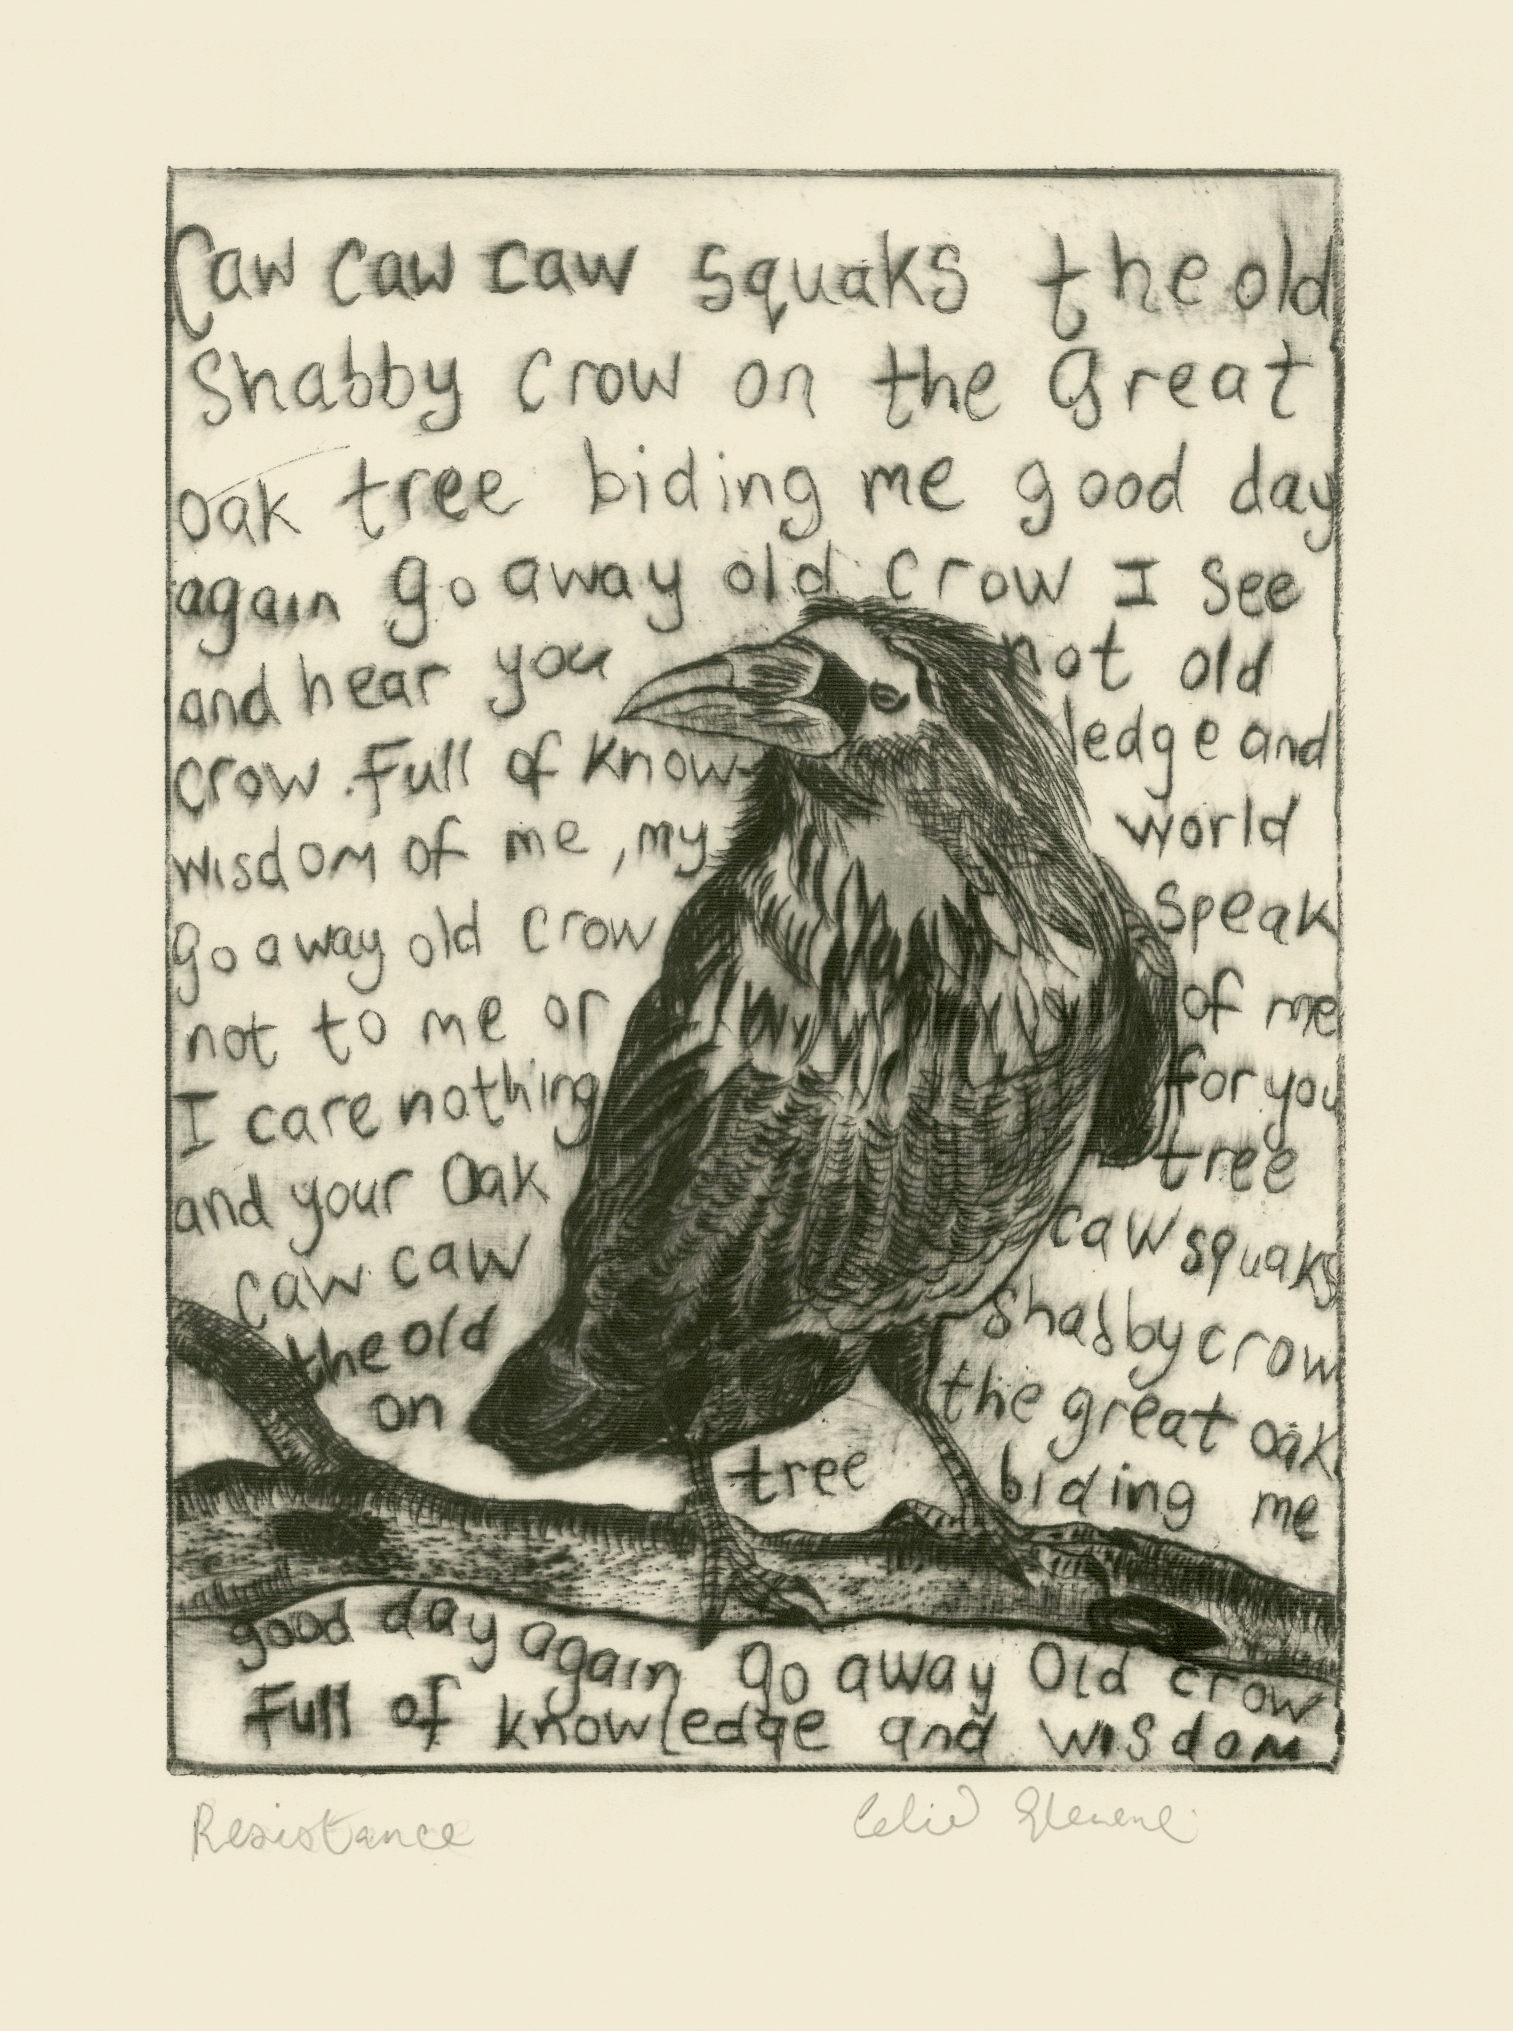 Caw caw caw squaks the old
Shabby crow on the Great
oak tree biding me good day
again go away old crow I see
and hear you not old
crow. Full of know- ledge and
wisdom of me, my world
go away old crow speak
not to me or of me
I care nothing for you
and your Oak tree
caw caw caw squaks
the old shabby crow
on the great oak
tree biding me
good day again go away Old crow
Full of knowledge and wisdom
Resistance